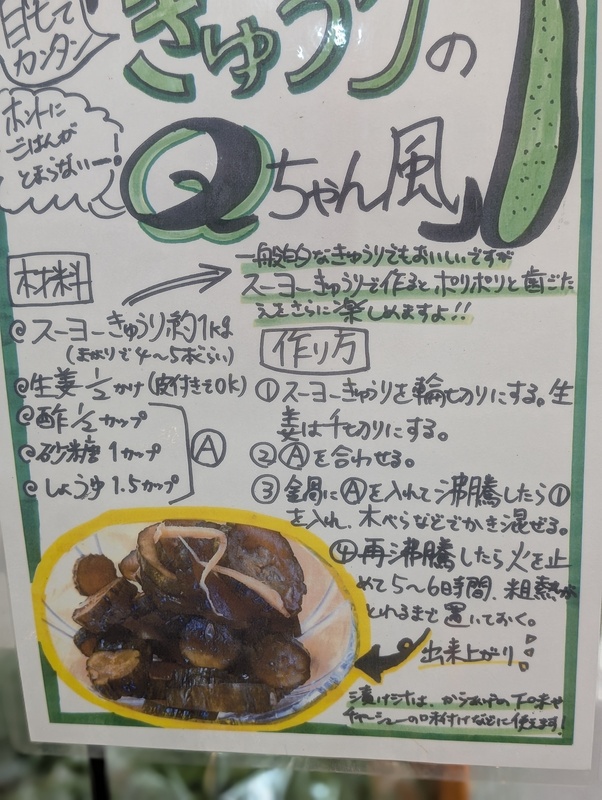 目もて
カンタン
きゅうりの
ホントに
ごはんが
とまらないー!
Qちゃん風♪
一般的なきゅうりでもおいしいですが
スーヨーきゅうりで作ると、ポリポリと歯ごた
えをさらに楽しめますよ!!
材料
スーヨーきゅうり約1kg
(まがりで4〜5本くらい)
生姜1/2かけ(皮付きでOK)
酢1/2カップ
砂糖1カップ
しょうゆ1.5カップ
Ⓐ
作り方
①スーヨーきゅうりを輪切りにする。生
姜は千切りにする。
②Ⓐを合わせる。
③鍋にⒶを入れて沸騰したら①
を入れ、木べらなどでかき混ぜる。
④再沸騰したら火を止
めて5〜6時間、粗熱が
とれるまで置いておく。
出来上がり!
漬け汁は、からあげの下味や
チャーシューの味付けなどに使えます!